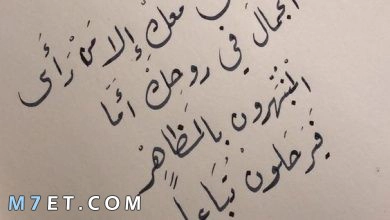 معكِ إلا من رأى
الجمال في روحكِ أمّا
المنبهرون بالمظاهر
فيرحلون تباعاً
M7ET.COM